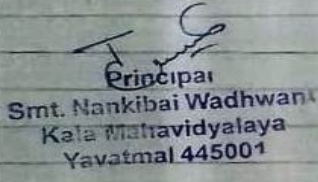 Principal
Smt. Nankibai Wadhwani
Kala Mahavidyalaya
Yavatmal 445001